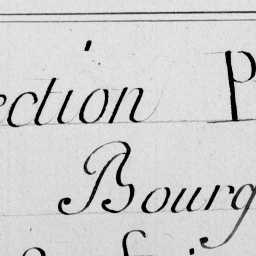 ection P
Bourg